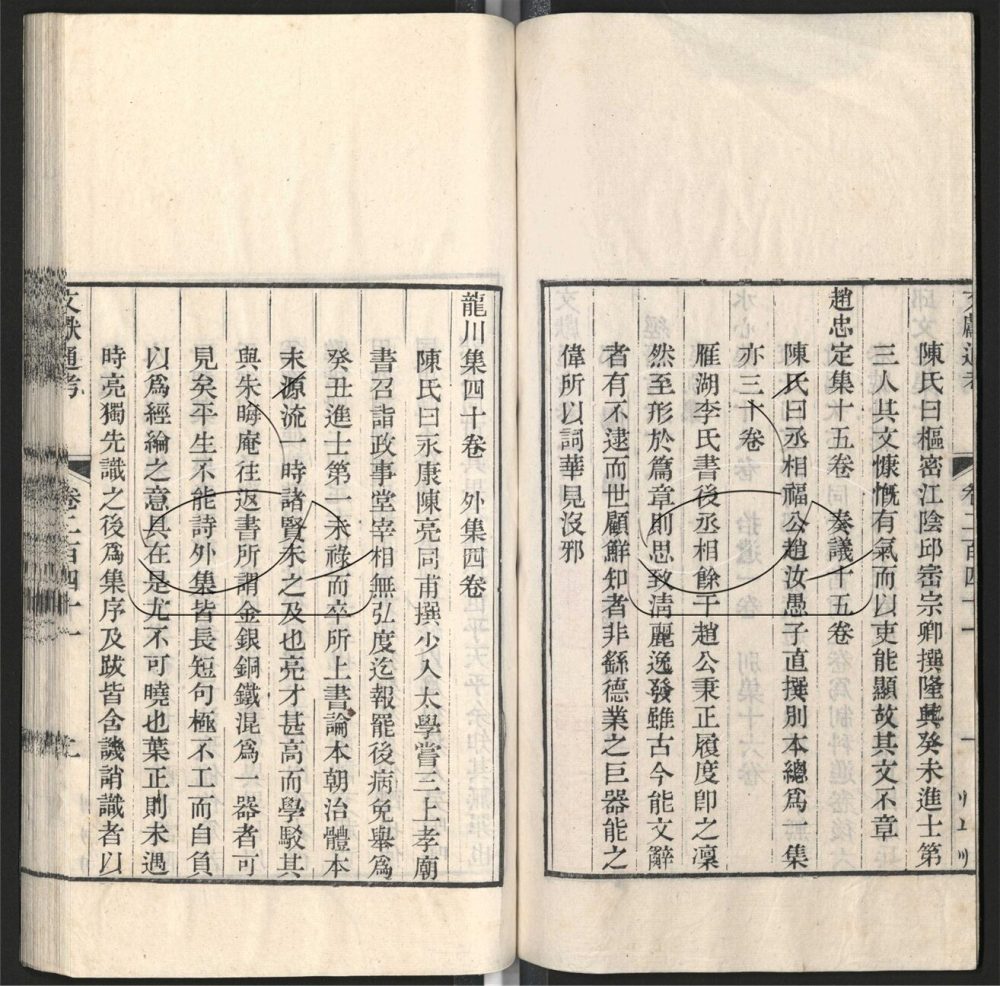 文獻通考
卷二百四十一
陳氏曰樞密江陰邱崈宗卿撰隆興癸未進士第
三人其文慷慨有氣而以吏能顯故其文不章
趙忠定集十五卷 奏議十五卷
陳氏曰丞相福公趙汝愚子直撰別本總爲一集
亦三十卷
雁湖李氏書後丞相餘干趙公秉正履度卽之凜
然至形於篇章則思致淸麗逸發雖古今能文辭
者有不逮而世顧鮮知者非繇德業之巨器能之
偉所以詞華見沒邪
龍川集四十卷 外集四卷
陳氏曰永康陳亮同甫撰少入太學嘗三上孝廟
書召詣政事堂宰相無弘度迄報罷後病免舉爲
癸丑進士第一未祿而卒所上書論本朝治體本
末源流一時諸賢未之及也亮才甚高而學駁其
與朱晦庵往返書所謂金銀銅鐵混爲一器者可
見矣平生不能詩外集皆長短句極不工而自負
以爲經綸之意具在是尤不可曉也葉正則未遇
時亮獨先識之後爲集序及跋皆含譏誚識者以
文獻通考
卷二百四十一